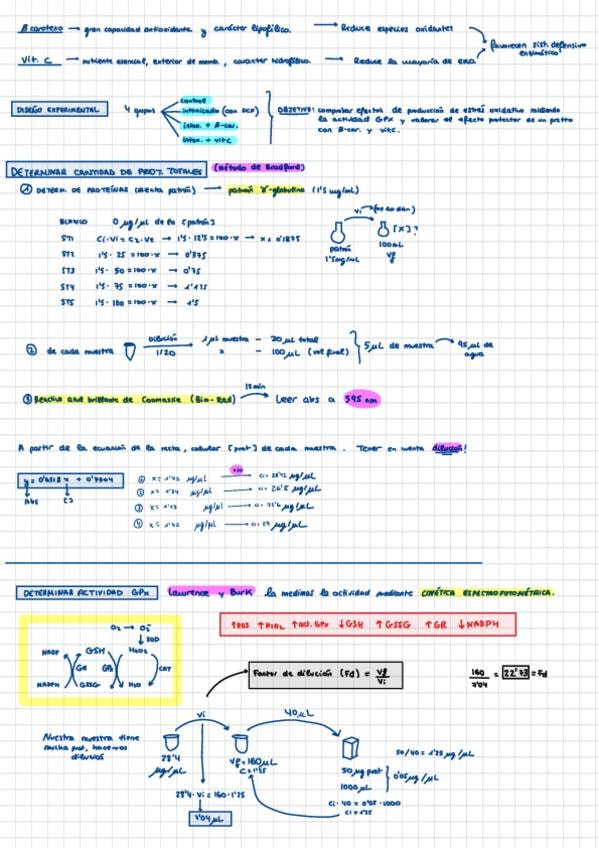 β caroteno → gran capacidad antioxidante y carácter lipofílico. → Reduce especies oxidantes
Favorecen sist. defensivo enzimático
Vit. C → nutriente esencial, exterior de memb, caracter hidrofílico. → Reduce la mayoría de ERO.
DISEÑO EXPERIMENTAL
4 grupos
control
intoxicado (con DCF)
intox. + β-car.
intox. + vit C
OBJETIVO: comprobar efectos de producción de estrés oxidativo midiendo
la actividad GPx y valorar el efecto protector de un pretto
con β-car. y vit C.
DETERMINAR CANTIDAD DE PROT. TOTALES (Método de Bradford)
① DETERM. DE PROTEÍNAS (recta patrón) → patrón γ-globulina (1'5 mg/mL)
BLANCO 0 µg/µL de la [patrón]
ST1 Ci·Vi = C2·V2 → 1'5·12'5 = 100·x → x = 0'1875
ST2 1'5·25 = 100·x → 0'375
ST3 1'5·50 = 100·x → 0'75
ST4 1'5·75 = 100·x → 1'125
ST5 1'5·100 = 100·x → 1'5
Vi
[x]?
patrón
1'5 mg/mL
100mL
Vf
② de cada muestra
Dilución
1/20
1 µL muestra – 20 µL total
x – 100 µL (vol final)
5 µL de muestra → 95 µL de
agua
③ Reactivo azul brillante de Coomassie (Bio-Rad)
15 min
Leer abs a 595 nm
A partir de la ecuación de la recta, calcular [prot] de cada muestra. Tener en cuenta dilución!
Abs
µg/µL
µg/µL
µg/µL
µg/µL
DETERMINAR ACTIVIDAD GPx Lawrence y Burk la medimos la actividad mediante CINÉTICA ESPECTROFOTOMÉTRICA.
↑ROS ↑H2O2 ↑act. GPx ↓GSH ↑GSSG ↑GR ↓NADPH
O2 → O2-
↓ SOD
NADP GSH H2O2
GR CAT
NADPH GSSG H2O
Factor de dilución (Fd) = Vf / Vi
160 / 7'04 = 22'73 = Fd
Nuestra muestra tiene
mucha prot, hacemos
dilución
Vi
40 µL
28'4
µg/µL
Vf = 160 µL
C = 1'25
50 µg prot
1000 µL
0'05 µg/µL
50/40 = 1'25 µg/µL
28'4·Vi = 160·1'25
7'04 µL
Ci·40 = 0'05·1000
Ci = 1'25